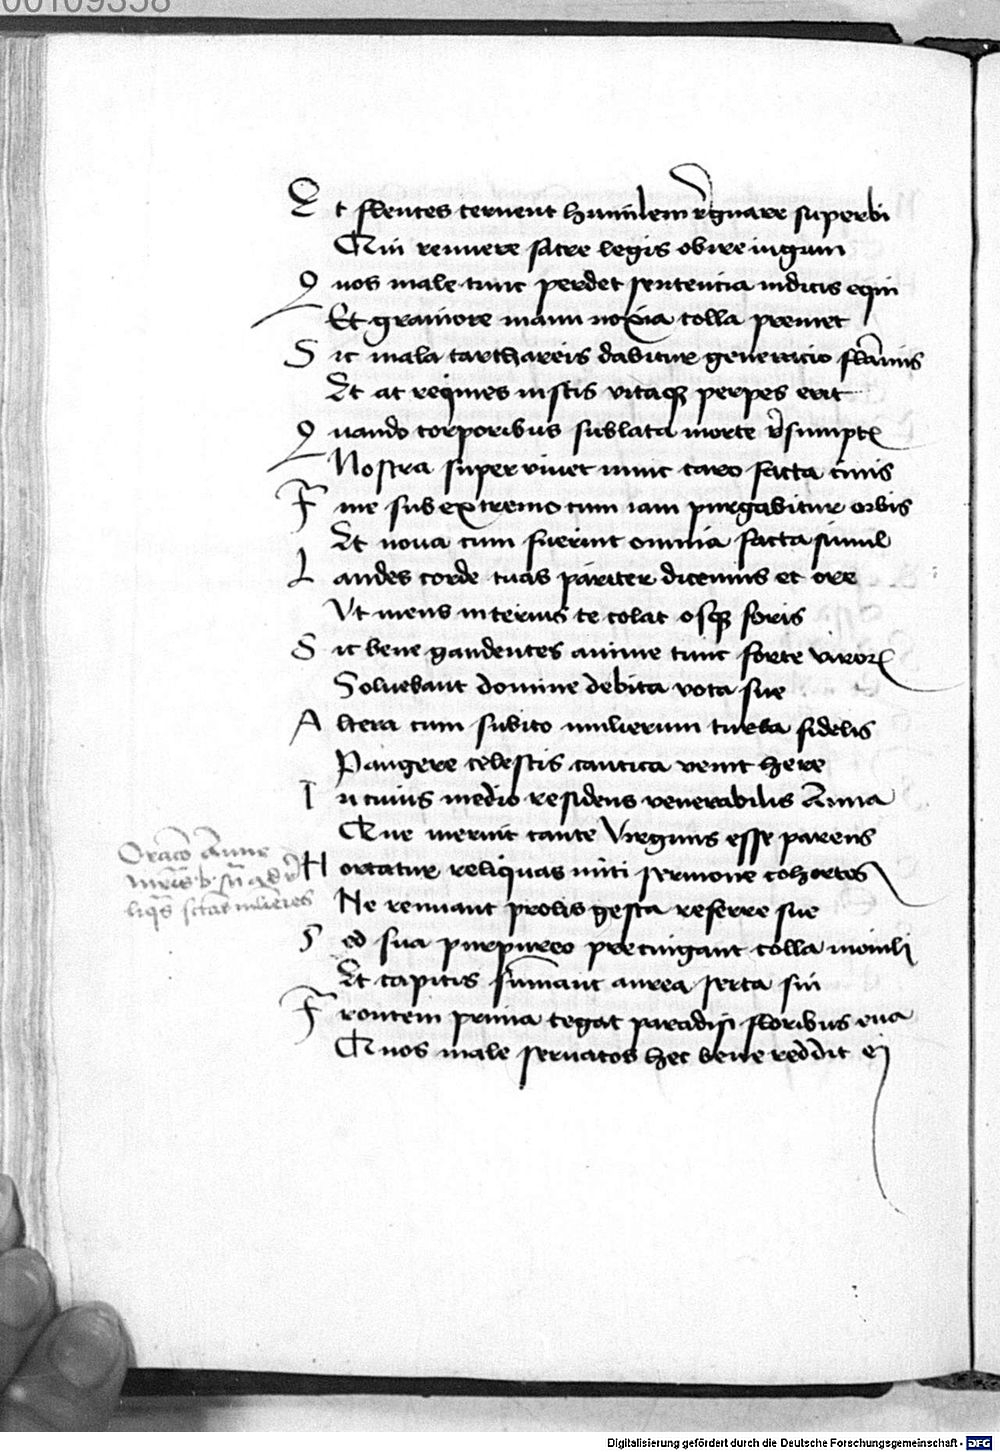 00109358
Et flentes cernent humilem r̄gnare superbi
Qui renuere sacre legis obire iugum
Quos male tunc perdet sentencia iudicis equi
Et grauiore manu noxia colla premet
Sic mala tarthareis dabitur generacio flāmis
Et at requies iustis vitaqꝫ perpes erit
Quando corporibus sublata morte r̄sumptꝭ
Nostra super viuet nunc caro facta cinis
Fine sub extremo cum iam purgabitur orbis
Et noua cum fuerint omnia facta simul
Laudes corde tuas pariter dicemus et ore
Vt mens interius te colat osqꝫ foris
Sic bene gaudentes anime tunc forte viroꝝ
Soluebant domine debita vota sue
Altera cum subito mulierum turba fidelis
Pangere celestis cantica venit here
In cuius medio residens venerabilis Anna
Que meruit tante Virginis esse parens
Oracō Anne
mr̄is b. vͥg ad r̄
liqͣs sctās mlieres
Hortatur reliquas miti sermone cohortes
Ne renuant prolis gesta referre sue
Sed sua purpureo precingant colla monili
Et capitis sūmant aurea serta sui
Frontem prima tegat paradisi floribus eua
Quos male seruatos hec bene reddit ei
Digitalisierung gefördert durch die Deutsche Forschungsgemeinschaft - DFG